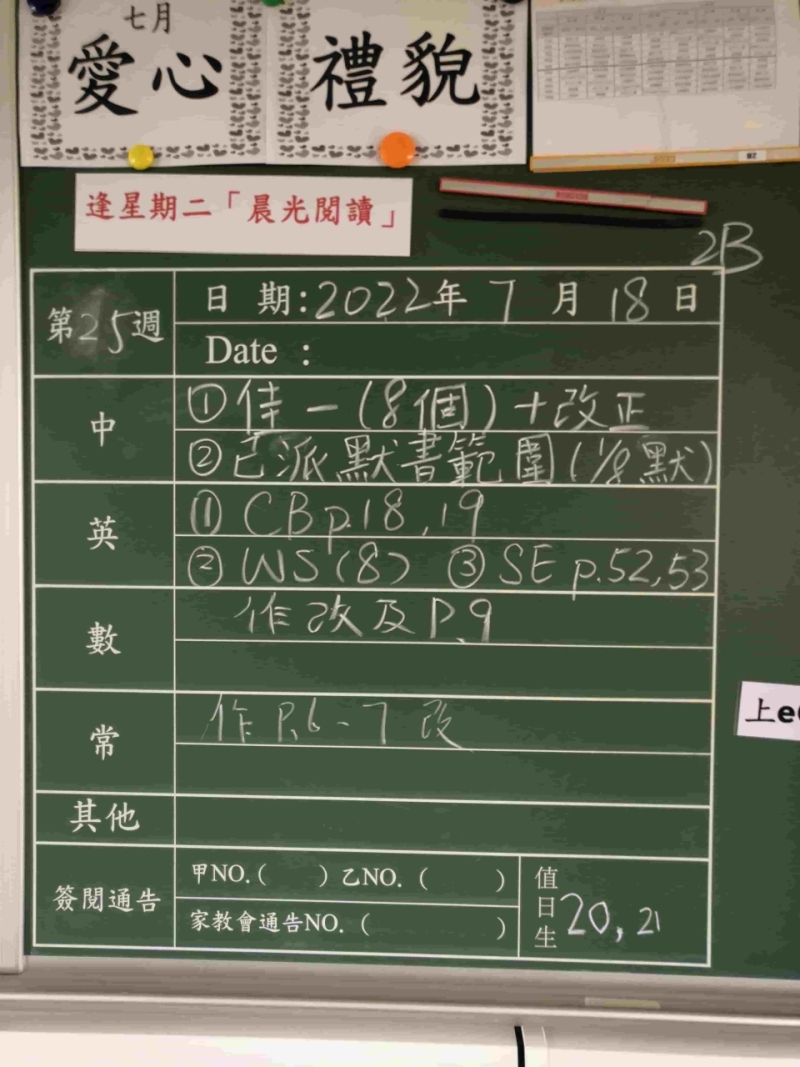 七月
愛心
禮貌
逢星期二「晨光閱讀」
2B
第25週
日 期:2022年 7 月 18 日
Date :
中
①佳一(8個)+改正
②已派默書範圍(1/8默)
英
① CB p.18,19
② WS(8) ③ SE p.52,53
數
作改及P.9
常
作P.6-7改
其他
簽閱通告
甲NO.( ) 乙NO. ( )
家教會通告NO. ( )
值日生 20, 21
上e